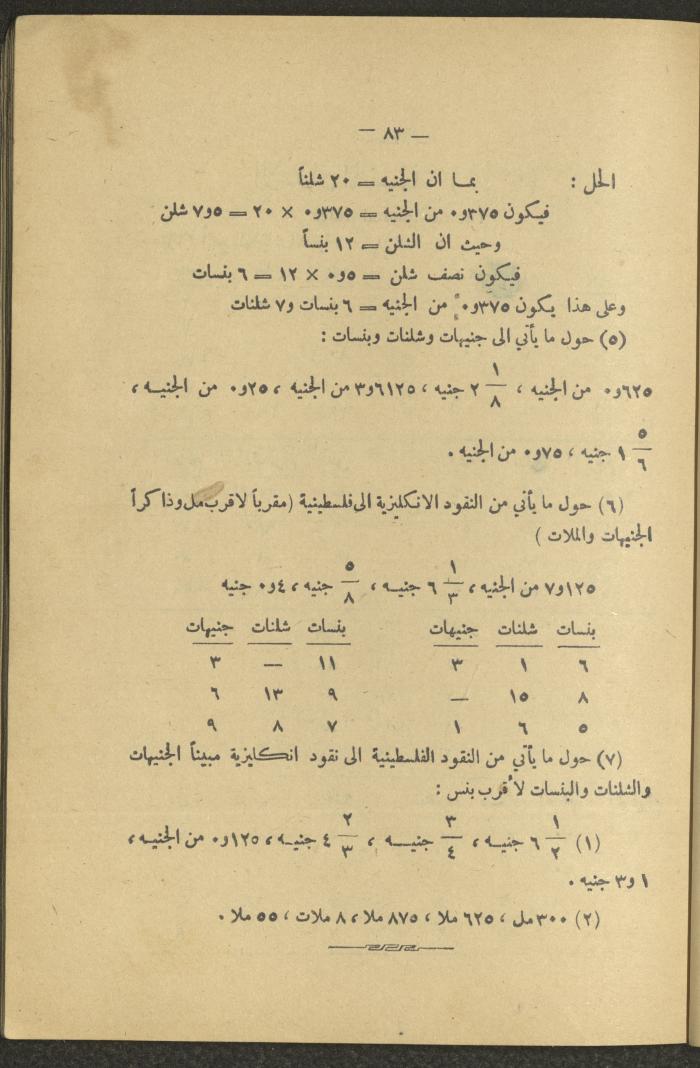 — ٨٣ —
الحل : بما ان الجنيه = ٢٠ شلناً
فيكون ٣٧٥و٠ من الجنيه = ٣٧٥و٠ × ٢٠ = ٥و٧ شلن
وحيث ان الشلن = ١٢ بنساً
فيكون نصف شلن = ٥و٠ × ١٢ = ٦ بنسات
وعلى هذا يكون ٣٧٥و٠ من الجنيه = ٦ بنسات و٧ شلنات
(٥) حول ما يأتي الى جنيهات وشلنات وبنسات :
٦٢٥و٠ من الجنيه ، ١/٨ ٢ جنيه ، ٦١٢٥و٣ من الجنيه ، ٢٥و٠ من الجنيه ،
٥/٦ ١ جنيه ، ٧٥و٠ من الجنيه .
(٦) حول ما يأتي من النقود الانكليزية الى فلسطينية (مقرباً لاقرب مل وذاكراً
الجنيهات والملات )
١٢٥و٧ من الجنيه ، ١/٣ ٦ جنيه ، ٥/٨ جنيه ، ٤و٠ جنيه
بنسات شلنات جنيهات بنسات شلنات جنيهات
٦ ١ ٣ ١١ — ٣
٨ ١٥ — ٩ ١٣ ٦
٥ ٦ ١ ٧ ٨ ٩
(٧) حول ما يأتي من النقود الفلسطينية الى نقود انكليزية مبيناً الجنيهات
والشلنات والبنسات لأقرب بنس :
(١) ١/٢ ٦ جنيه ، ٣/٤ جنيه ، ٢/٣ ٤ جنيه ، ١٢٥و٠ من الجنيه ،
١و٣ جنيه .
(٢) ٣٠٠ مل ، ٦٢٥ ملا ، ٨٧٥ ملا ، ٨ ملات ، ٥٥ ملا .